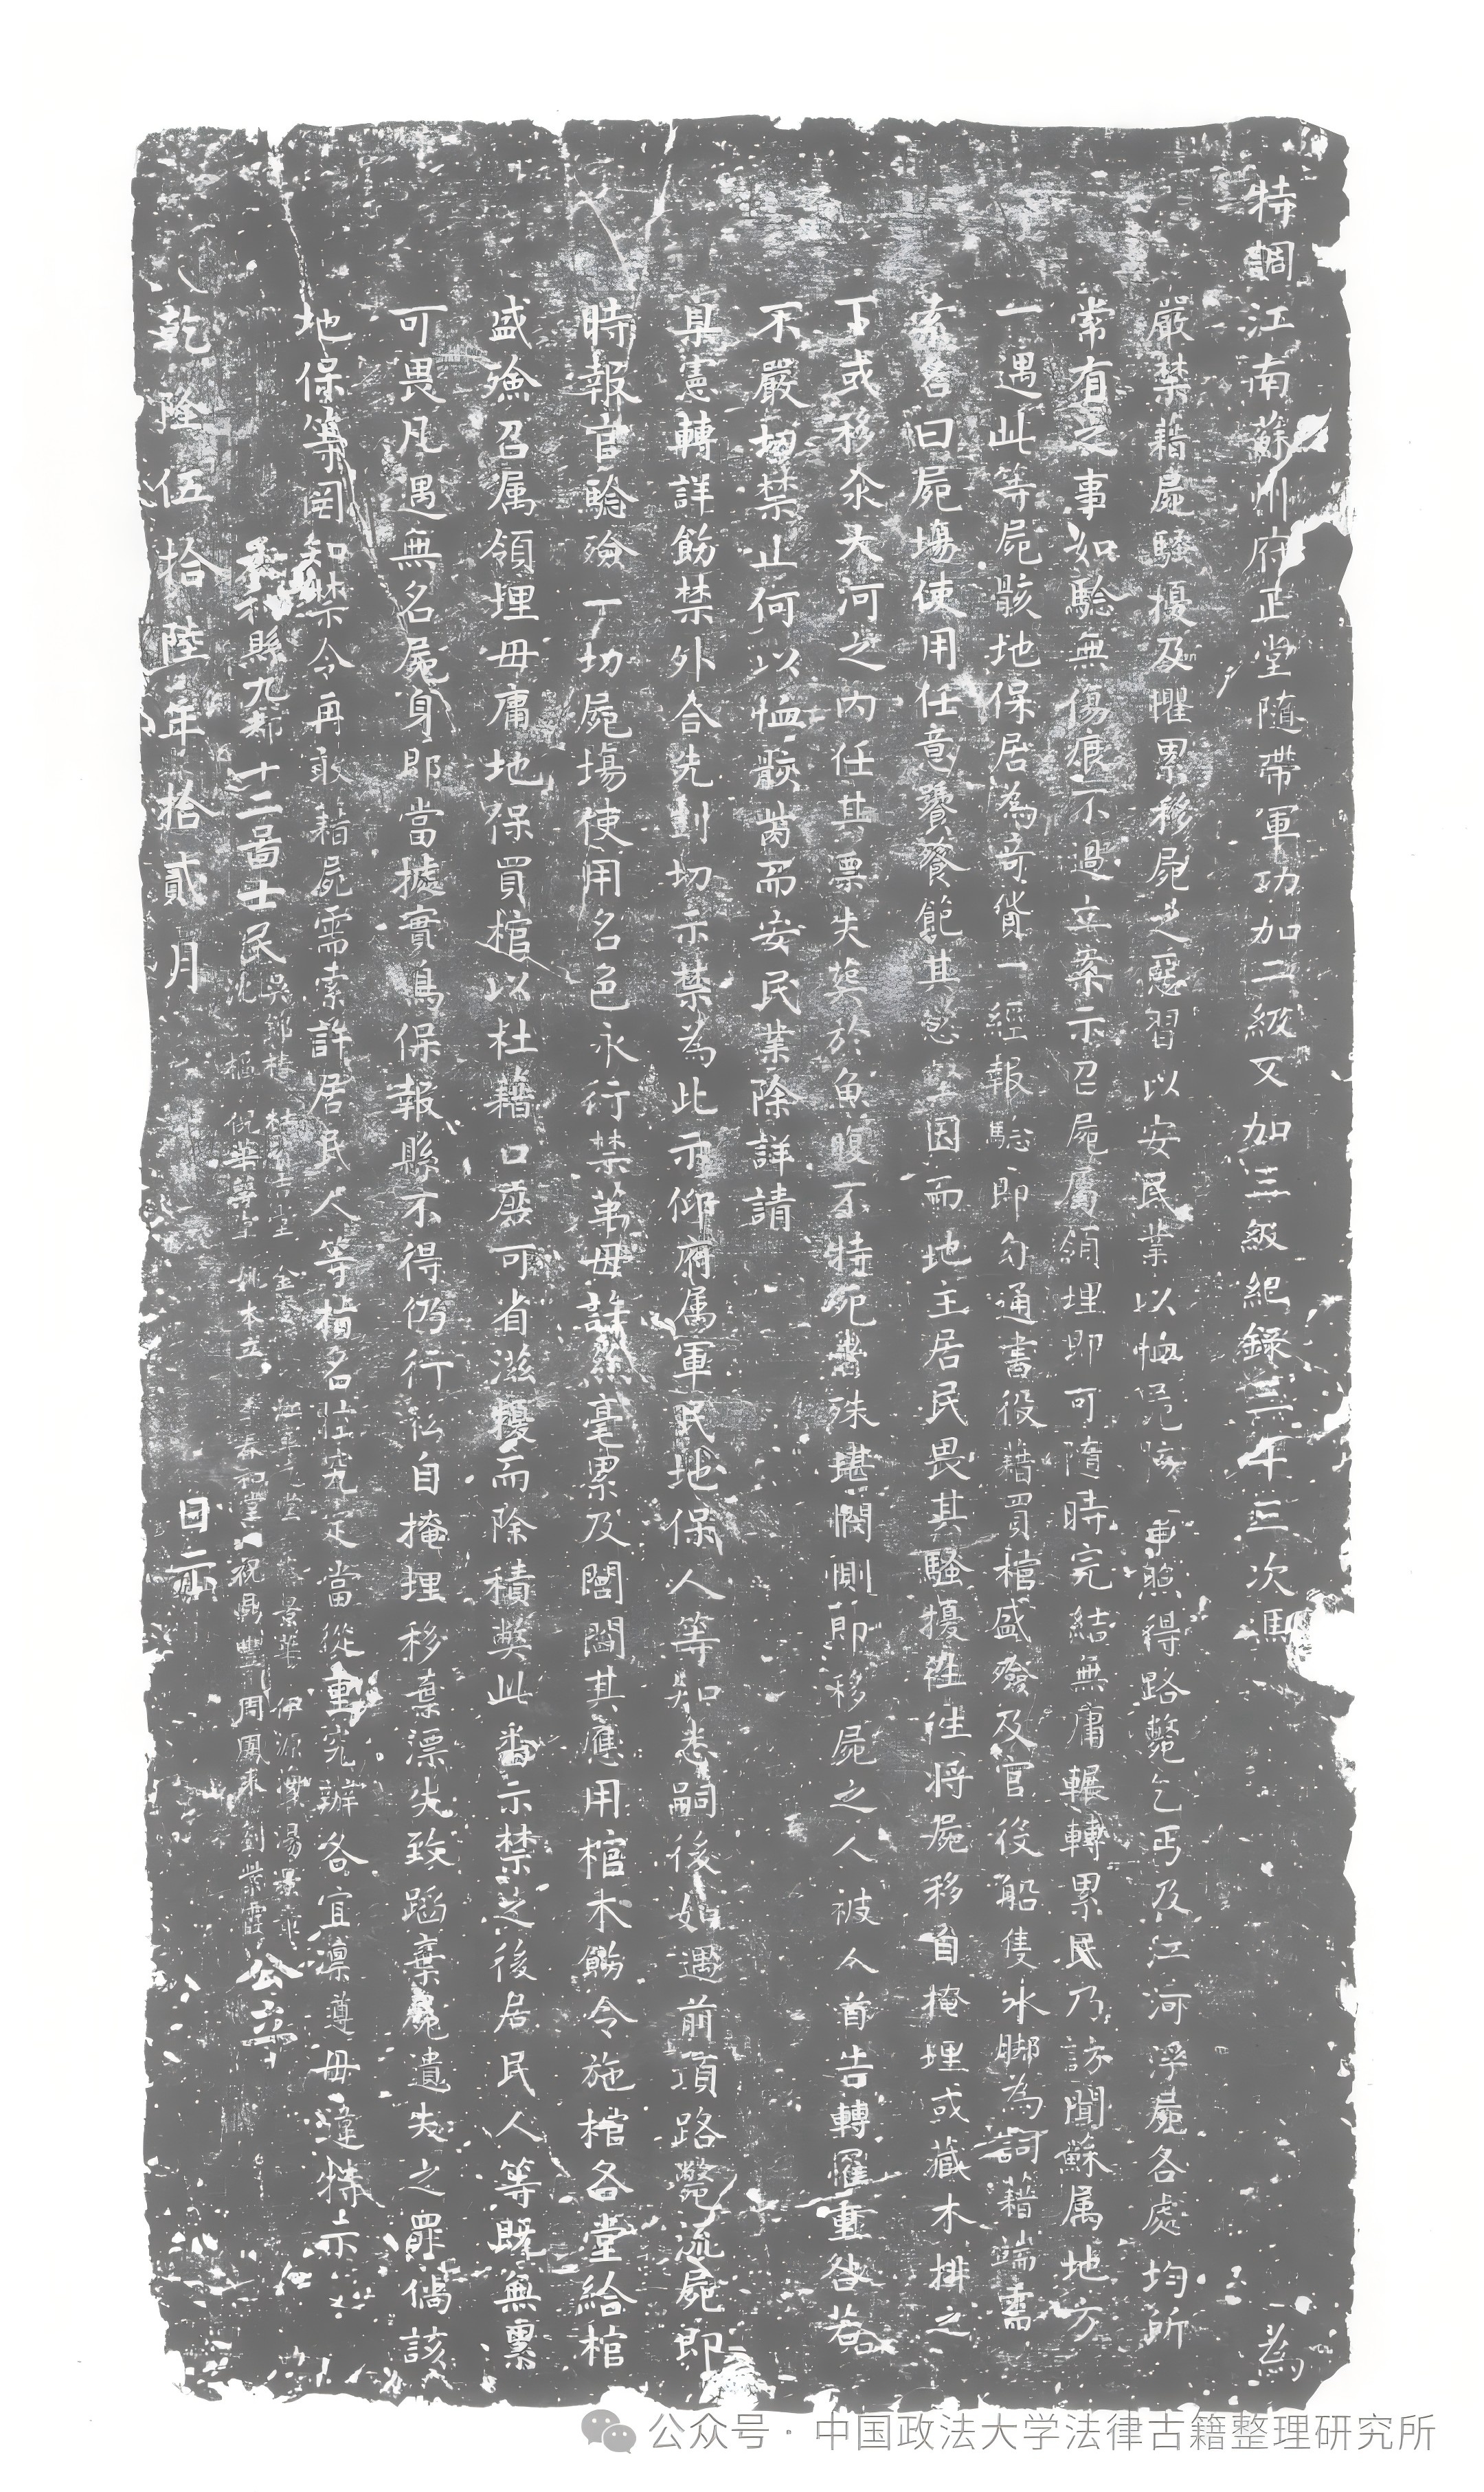 特調江南蘇州府正堂隨帶軍功加二級又加三級紀錄三十三次馮 為
嚴禁藉屍騷擾及懼累移屍之惡習以安民業以恤 事照得路斃乞丐及江河浮屍各處均所
常有之事如驗無傷痕不過立案示召屍屬領埋即可隨時完結無庸輾轉累民乃訪聞蘇属地方
一遇此等屍骸地保居為奇貨一經報驗即勾通書役藉買棺盛殮及官役船隻水脚為詞藉端需
索名曰屍塲使用任意 飱飽其慾壑因而地主居民畏其騷擾往往將屍移自掩埋或藏木排之
下或移汆大河之内任其票失葬於魚腹不特死者殊堪憫惻即移屍之人被人首告轉罹重咎若
不嚴切禁止何以恤骸 而安民業除詳請
臬憲轉詳飭禁外合先剴切示禁為此示仰府属軍民地保人等知悉嗣後如遇前項路斃流屍即
時報官驗殮一切屍塲使用名色永行禁革毋許絲毫累及閭閻其應用棺木飭令施棺各堂給棺
盛殮召属領埋毋庸地保買棺以杜藉口庶可省滋擾而除積獘此畨示禁之後居民人等既無累
可畏凡遇無名屍身即當據實鳥保報縣不得仍行私自掩埋移棄漂失致蹈棄屍遺失之罪倘該
地保等罔知禁令再敢藉屍需索許居民人等指名 究定當從重究辦各宜凛遵毋違特示
縣九都十二啚士民吳 椿 堂 金 堂 景華 伊源 湯景
沈 樞 倪華 堂 姚本立 李春和堂 祝鼎豐 周鳳來 劉紫霞 公立
乾隆伍拾陸年拾貳月 日示
公众号·中国政法大学法律古籍整理研究所